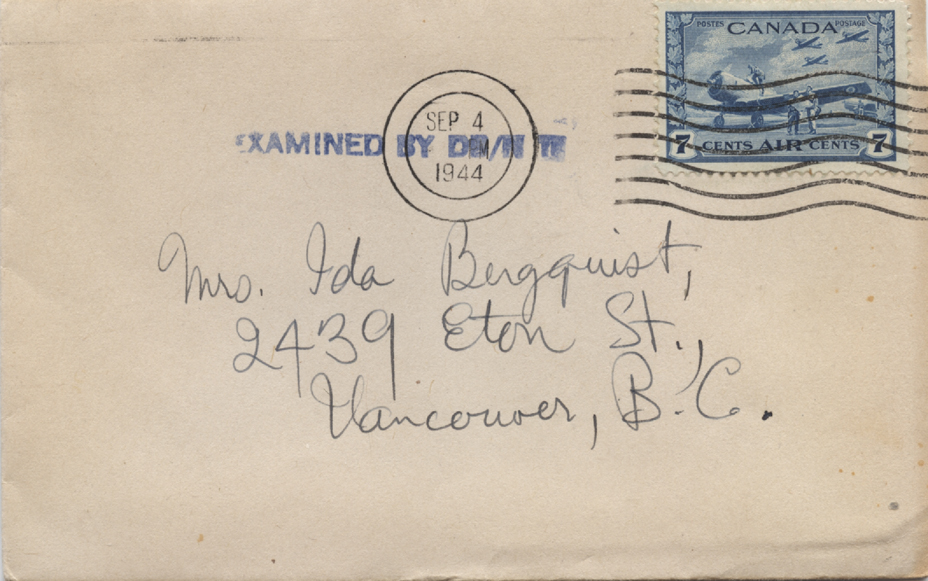 POSTES CANADA POSTAGE
7 CENTS AIR CENTS 7
SEP 4
PM
1944
EXAMINED BY
Mrs. Ida Bergquist,
2439 Eton St.,
Vancouver, B.C.